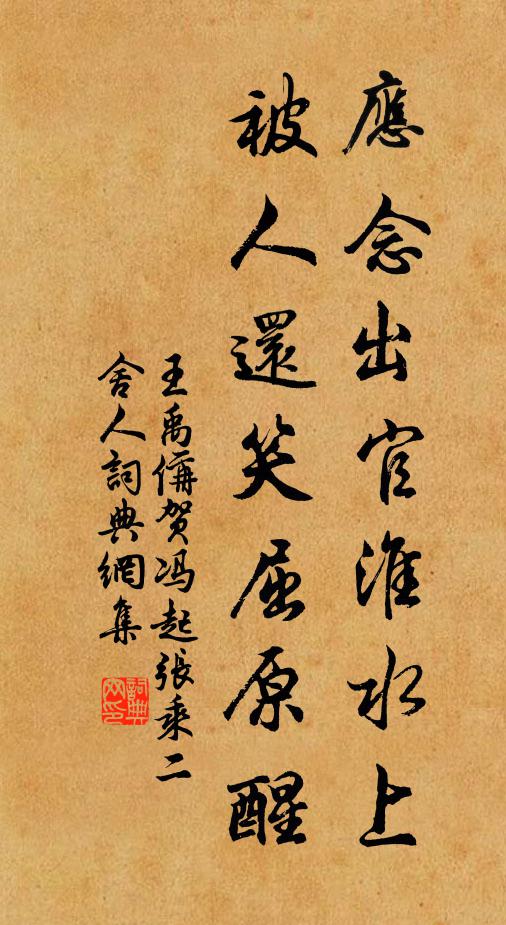 應念出官淮水上
被人還笑屈原醒
王禹偁賀冯起張秉二
舍人詞典網集
詞典网印